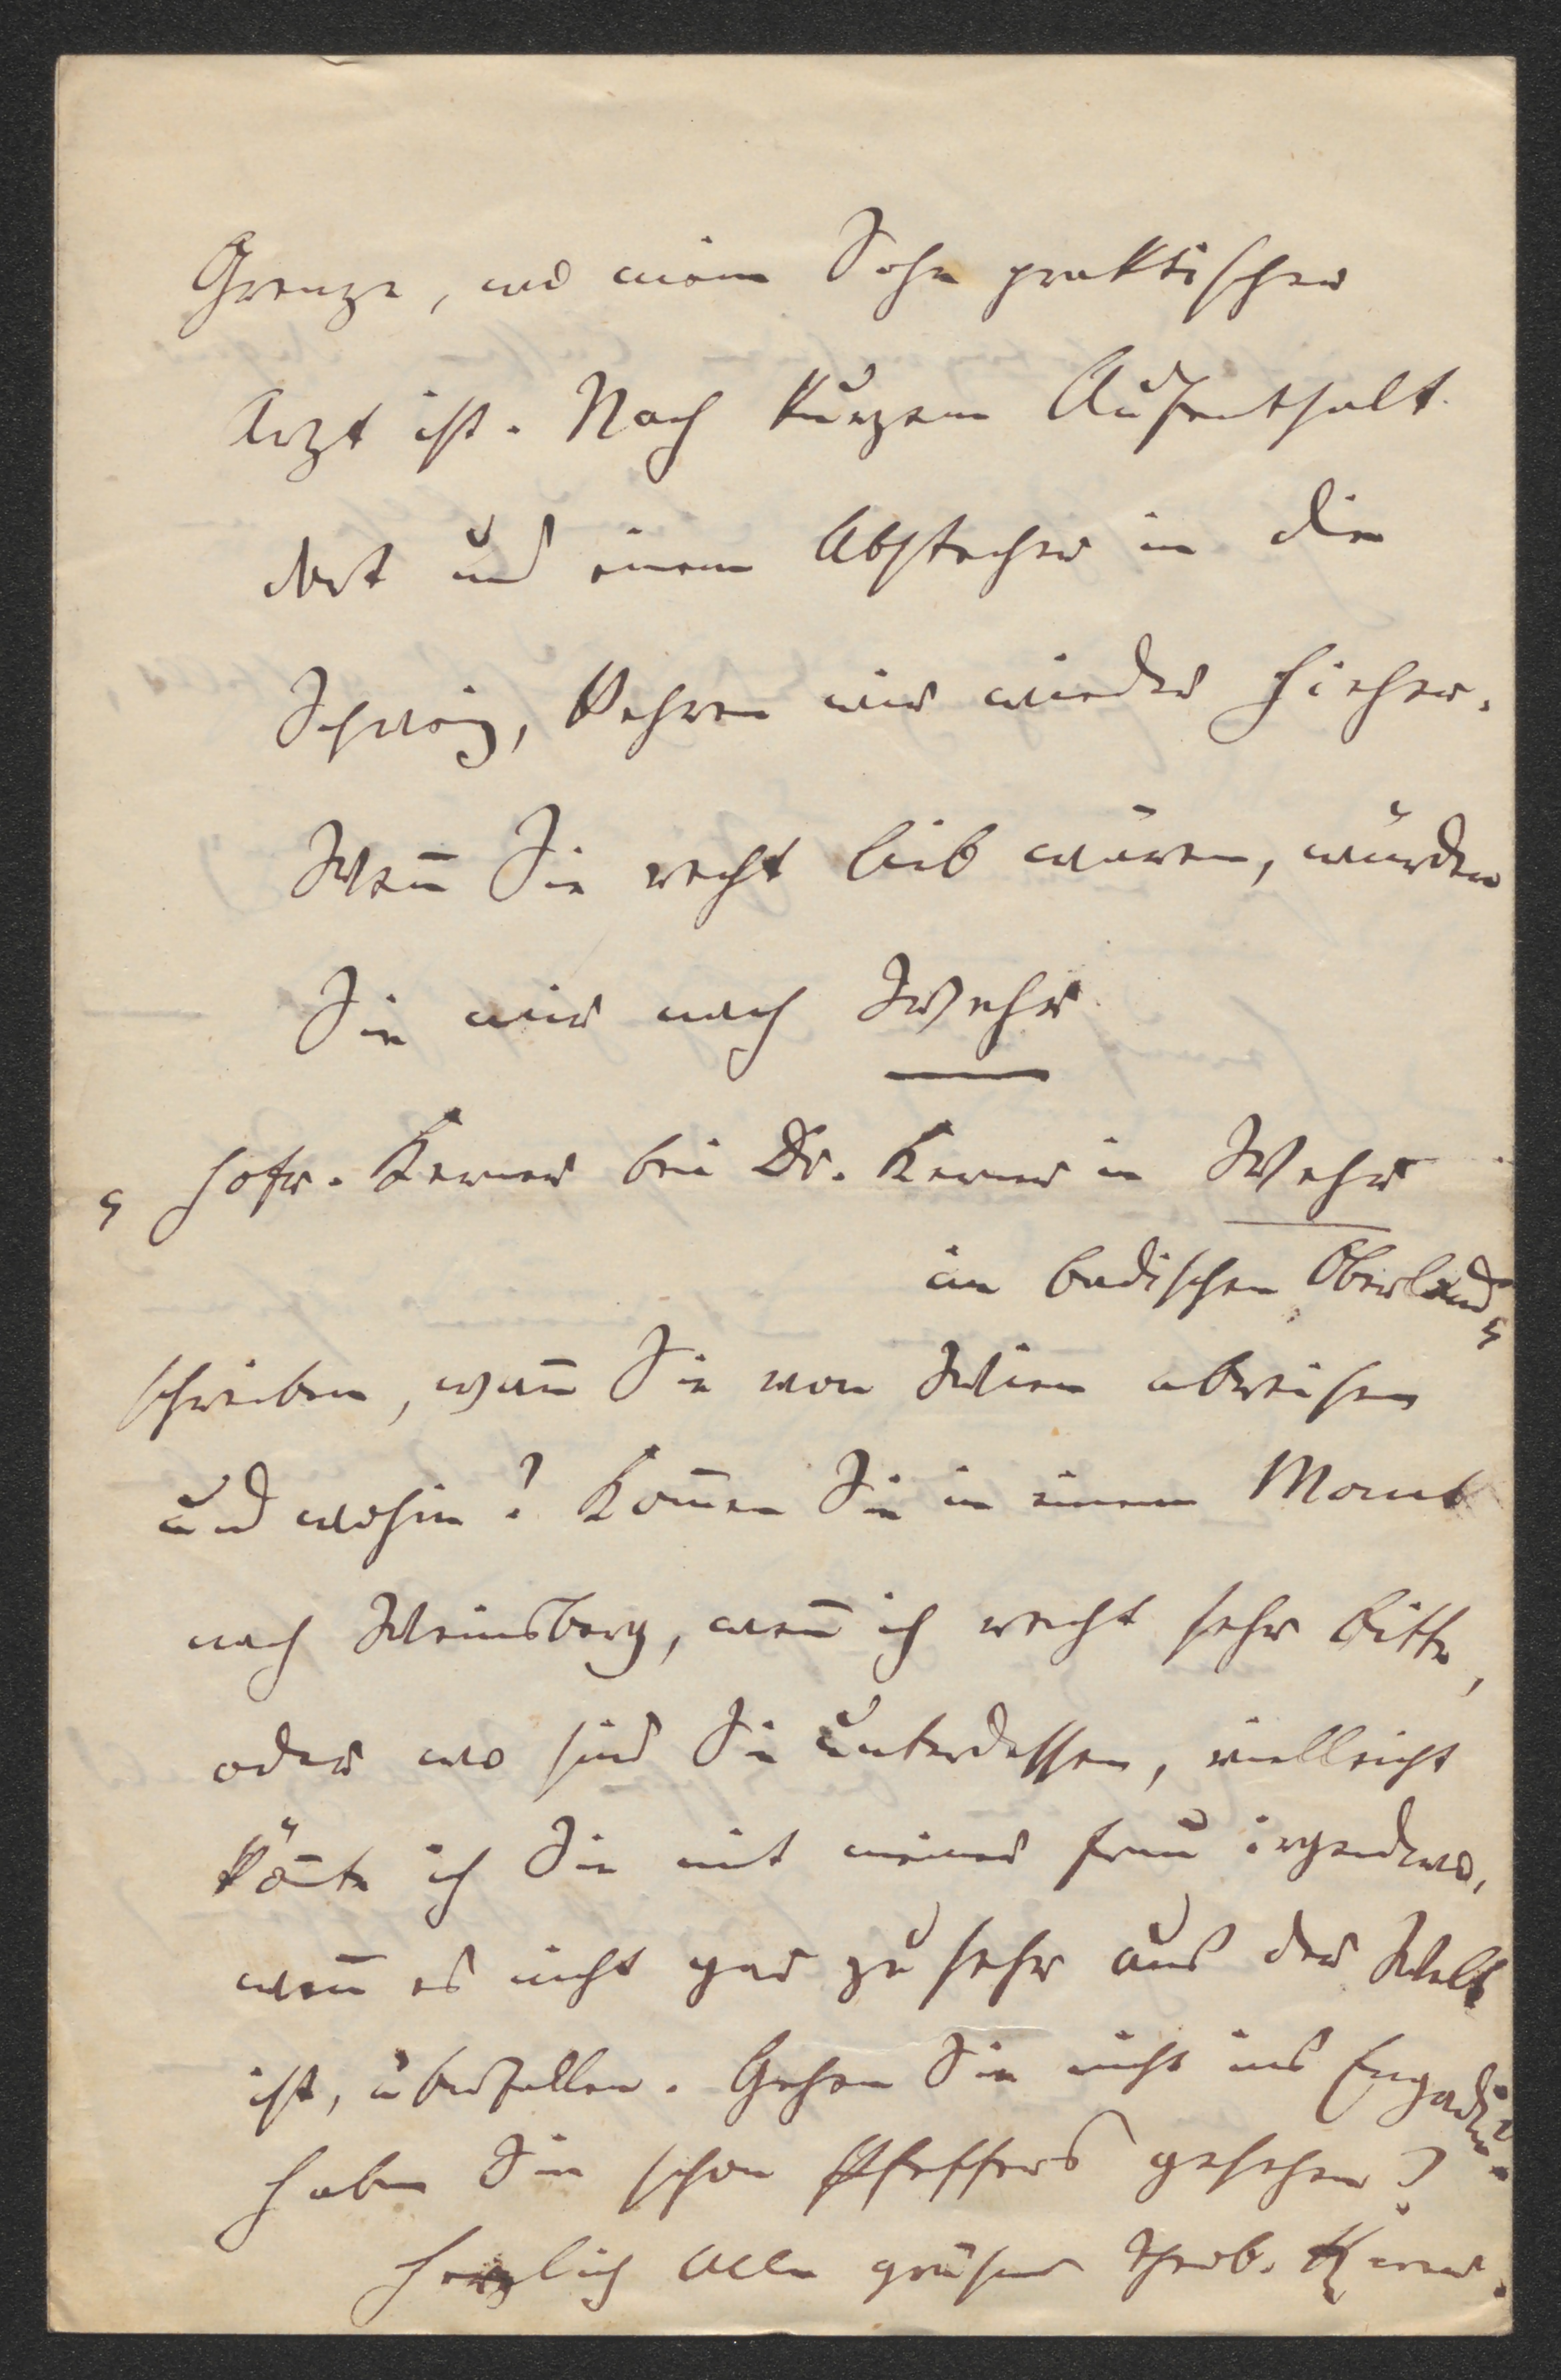 Grenze, wo mein Sohn praktischer
Arzt ist. Nach kurzem Aufenthalt
dort und einem Abstecher in die
Schweiz, kehren wir wieder hieher.
Wen̄ Sie recht lieb wären, würden
Sie mir nach Wehr
Hofr. Kerner bei Dr. Kerner in Wehr
im badischen Oberland
schreiben, wan̄ Sie von Wien abreisen
und wohin? Kom̄en Sie in einem Monat
nach Weinsberg, wen̄ ich recht sehr bitte,
oder wo sind Sie unterdessen, vielleicht
kön̄te ich Sie mit meiner Frau irgendwo,
wen̄ es nicht gar zu sehr aus der Welt
ist, überfallen. Gehen Sie nicht ins Engadin?
Haben Sie schon Pfeffers gesehen?
Herzlich Alle grüßend Theob. Kerner.